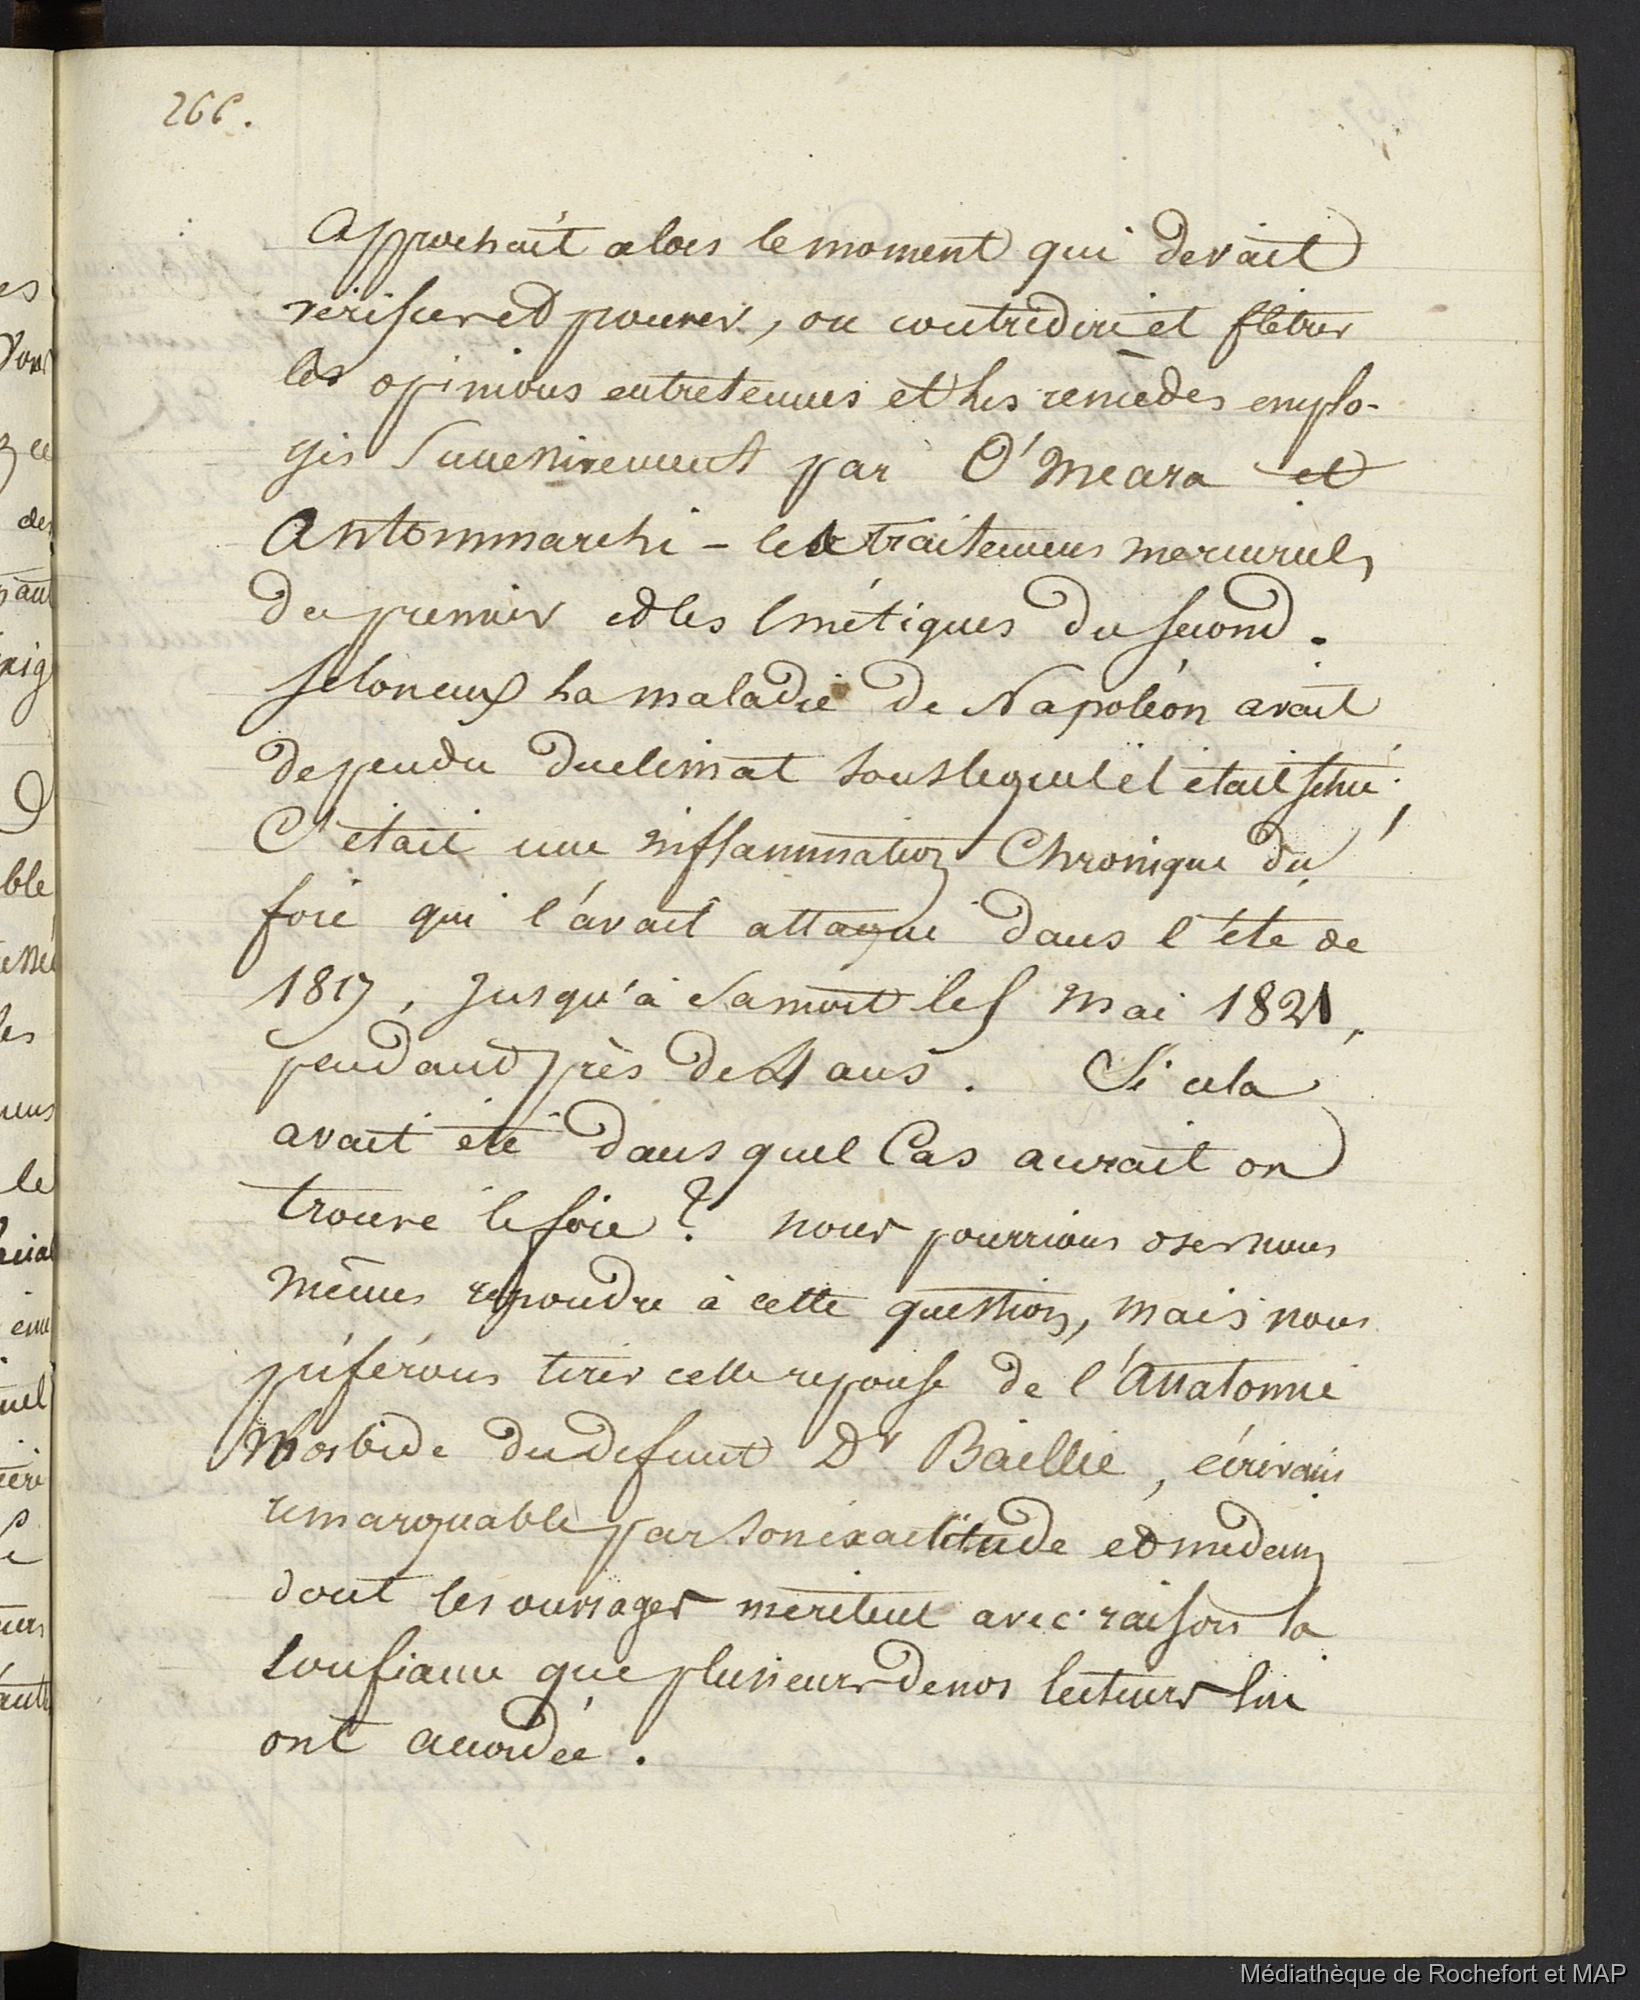 266.
Approchait alors le moment qui devait
vérifier et prouver, ou contredire et flétrir
les opinions entretenues et les remèdes emplo-
yés successivement par O'Meara et
Antommarchi - les traitemens mercuriels
du premier et les émétiques du second.
Selon eux la maladie de Napoléon avait
dependu du climat sous lequel il était situé.
C'était une inflammation Chronique du
foie qui l'avait attaqué dans l'été de
1817, Jusqu'à sa mort le 5 Mai 1821,
pendant près de 4 ans. Si cela
avait été dans quel Cas aurait on
trouvé le foie? nous pourrions oser nous
mêmes repondre à cette question, mais nous
préférons tirer cette reponse de l'Anatomie
Morbide du defunt Dr Baillie, écrivain
remarquable par son exactitude et medecin
dont les ouvrages méritent avec raison la
confiance que plusieurs de nos lecteurs lui
ont accordée.
Médiathèque de Rochefort et MAP